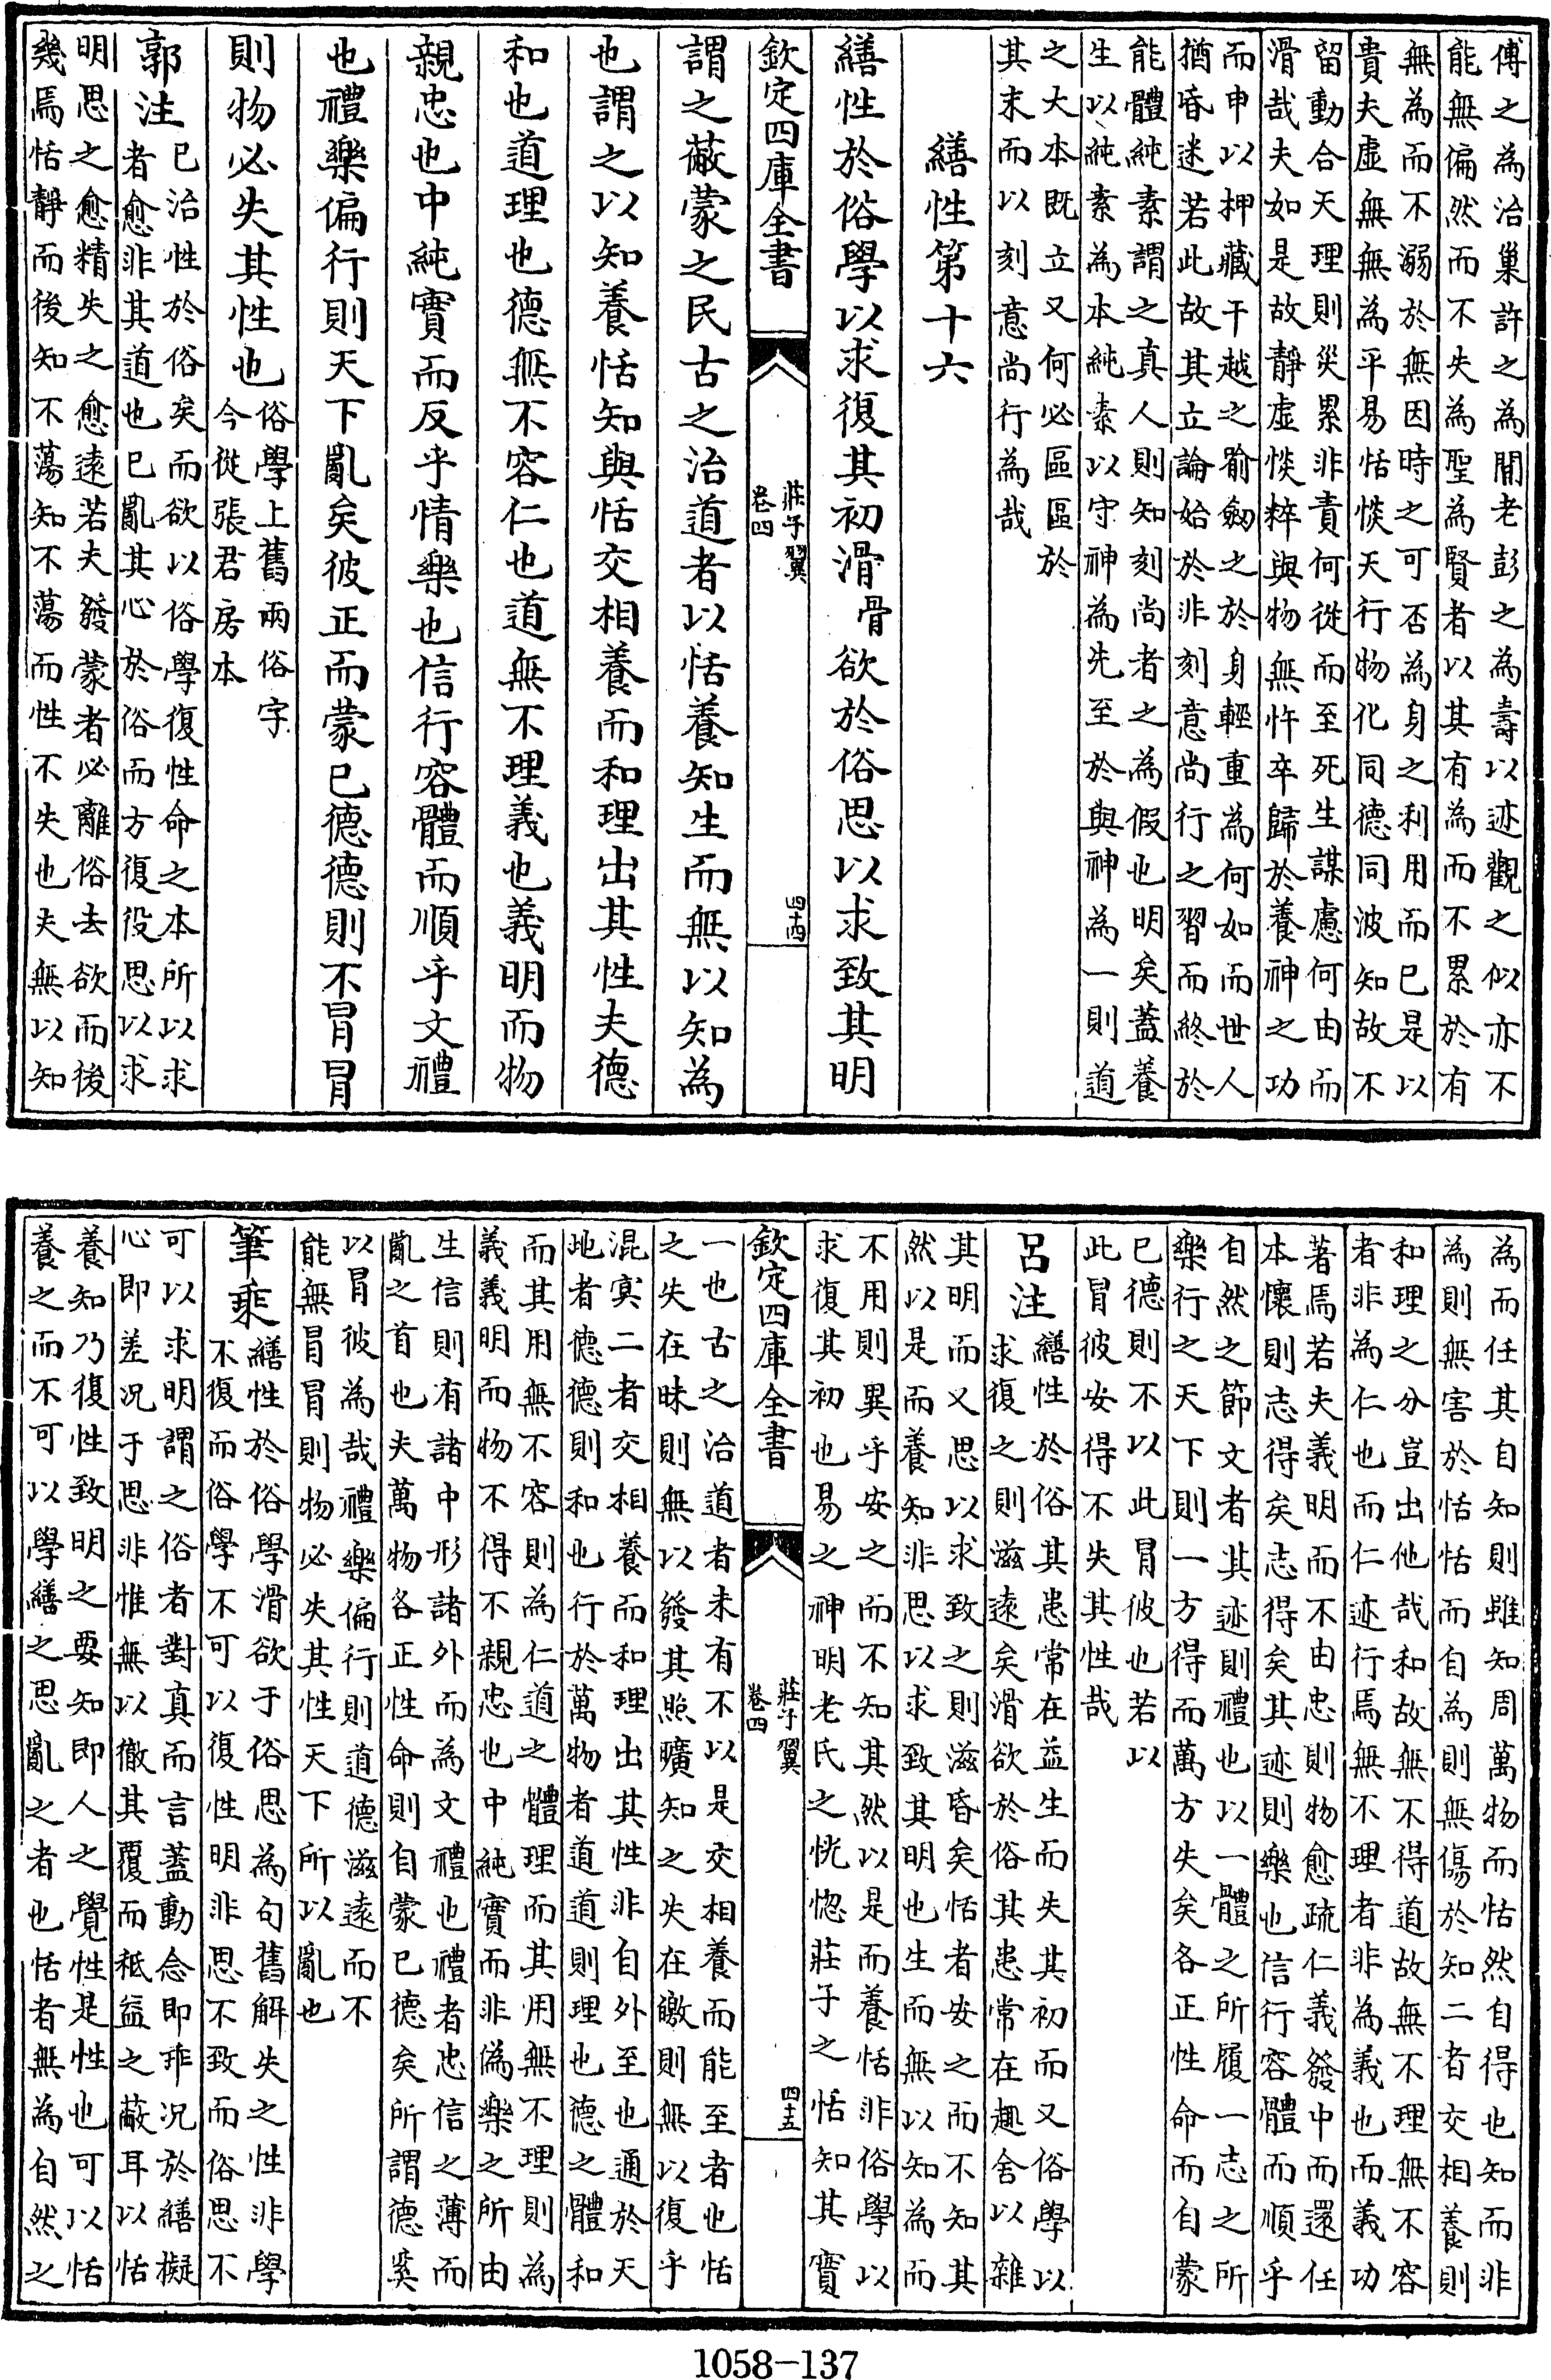 傅之為治巢許之為閒老彭之為壽以迹觀之似亦不
能無偏然而不失為聖為賢者以其有為而不累於有
無為而不溺於無因時之可否為身之利用而已是以
貴夫虛無無為平易恬惔天行物化同德同波知故不
留動合天理則災累非責何從而至死生謀慮何由而
滑哉夫如是故靜虛惔粹與物無忤卒歸於養神之功
而申以押藏干越之喻劔之於身輕重為何如而世人
猶昏迷若此故其立論始於非刻意尚行之習而終於
能體純素謂之真人則知刻尚者之為假也明矣蓋養
生以純素為本純素以守神為先至於與神為一則道
之大本既立又何必區區於
其末而以刻意尚行為哉
繕性第十六
繕性於俗學以求復其初滑骨欲於俗思以求致其明
欽定四庫全書
莊子翼
卷四
四十四
謂之蔽蒙之民古之治道者以恬養知生而無以知為
也謂之以知養恬知與恬交相養而和理出其性夫德
和也道理也德無不容仁也道無不理義也義明而物
親忠也中純實而反乎情樂也信行容體而順乎文禮
也禮樂偏行則天下亂矣彼正而蒙已德德則不冒冒
則物必失其性也
俗學上舊兩俗字
今從張君房本
郭注
已治性於俗矣而欲以俗學復性命之本所以求
者愈非其道也已亂其心於俗而方復役思以求
明思之愈精失之愈遠若夫發蒙者必離俗去欲而後
幾焉恬靜而後知不蕩知不蕩而性不失也夫無以知
為而任其自知則雖知周萬物而恬然自得也知而非
為則無害於恬恬而自為則無傷於知二者交相養則
和理之分豈出他哉和故無不得道故無不理無不容
者非為仁也而仁迹行焉無不理者非為義也而義功
著焉若夫義明而不由忠則物愈疏仁義發中而還任
本懷則志得矣志得矣其迹則樂也信行容體而順乎
自然之節文者其迹則禮也以一體之所履一志之所
樂行之天下則一方得而萬方失矣各正性命而自蒙
已德則不以此冒彼也若以
此冒彼安得不失其性哉
呂注
繕性於俗其患常在益生而失其初而又俗學以
求復之則滋遠矣滑欲於俗其患常在趣舍以雜
其明而又思以求致之則滋昏矣恬者安之而不知其
然以是而養知非思以求致其明也生而無以知為而
不用則異乎安之而不知其然以是而養恬非俗學以
求復其初也易之神明老氏之恍惚莊子之恬知其實
欽定四庫全書
莊子翼
卷四
四十五
一也古之治道者未有不以是交相養而能至者也恬
之失在昧則無以發其照曠知之失在皦則無以復乎
混冥二者交相養而和理出其性非自外至也通於天
地者德德則和也行於萬物者道道則理也德之體和
而其用無不容則為仁道之體理而其用無不理則為
義義明而物不得不親忠也中純實而非偽樂之所由
生信則有諸中形諸外而為文禮也禮者忠信之薄而
亂之首也夫萬物各正性命則自蒙已德矣所謂德奚
以冒彼為哉禮樂偏行則道德滋遠而不
能無冒冒則物必失其性天下所以亂也
筆乘
繕性於俗學滑欲于俗思為句舊解失之性非學
不復而俗學不可以復性明非思不致而俗思不
可以求明謂之俗者對真而言蓋動念即乖况於繕擬
心即差况于思非惟無以徹其覆而秪益之蔽耳以恬
養知乃復性致明之要知即人之覺性是性也可以恬
養之而不可以學繕之思亂之者也恬者無為自然之
1058-137